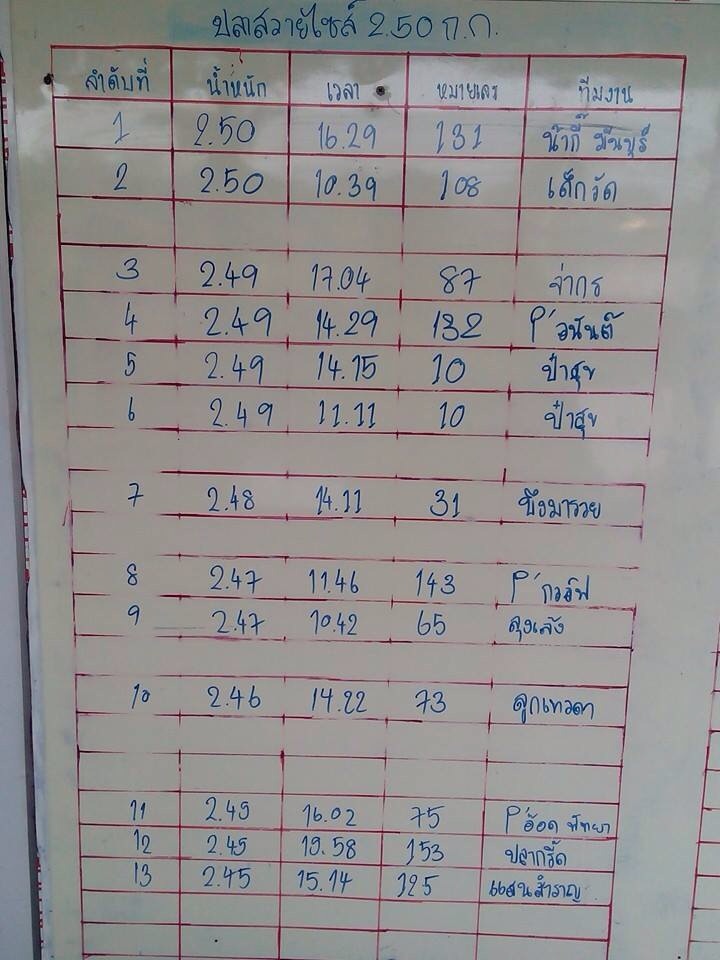 ปลาสวายไซส์ 2.50 ก.ก.
ลำดับที่ น้ำหนัก เวลา หมายเลข ทีมงาน
1 2.50 16.29 131 น้ากี้ มีนบุรี
2 2.50 10.39 108 เด็กวัด
3 2.49 17.04 87 จ่ากร
4 2.49 14.29 132 P'อนันต์
5 2.49 14.15 10 ป๋าสุข
6 2.49 11.11 10 ป๋าสุข
7 2.48 14.11 31 พึ่งมารวย
8 2.47 11.46 143 P'กอล์ฟ
9 2.47 10.42 65 ลุงเล้ง
10 2.46 14.22 73 ลูกเทวดา
11 2.45 16.02 75 P'อ๊อด พัทยา
12 2.45 15.58 153 ปลากรี๊ด
13 2.45 15.14 125 แสนสำราญ